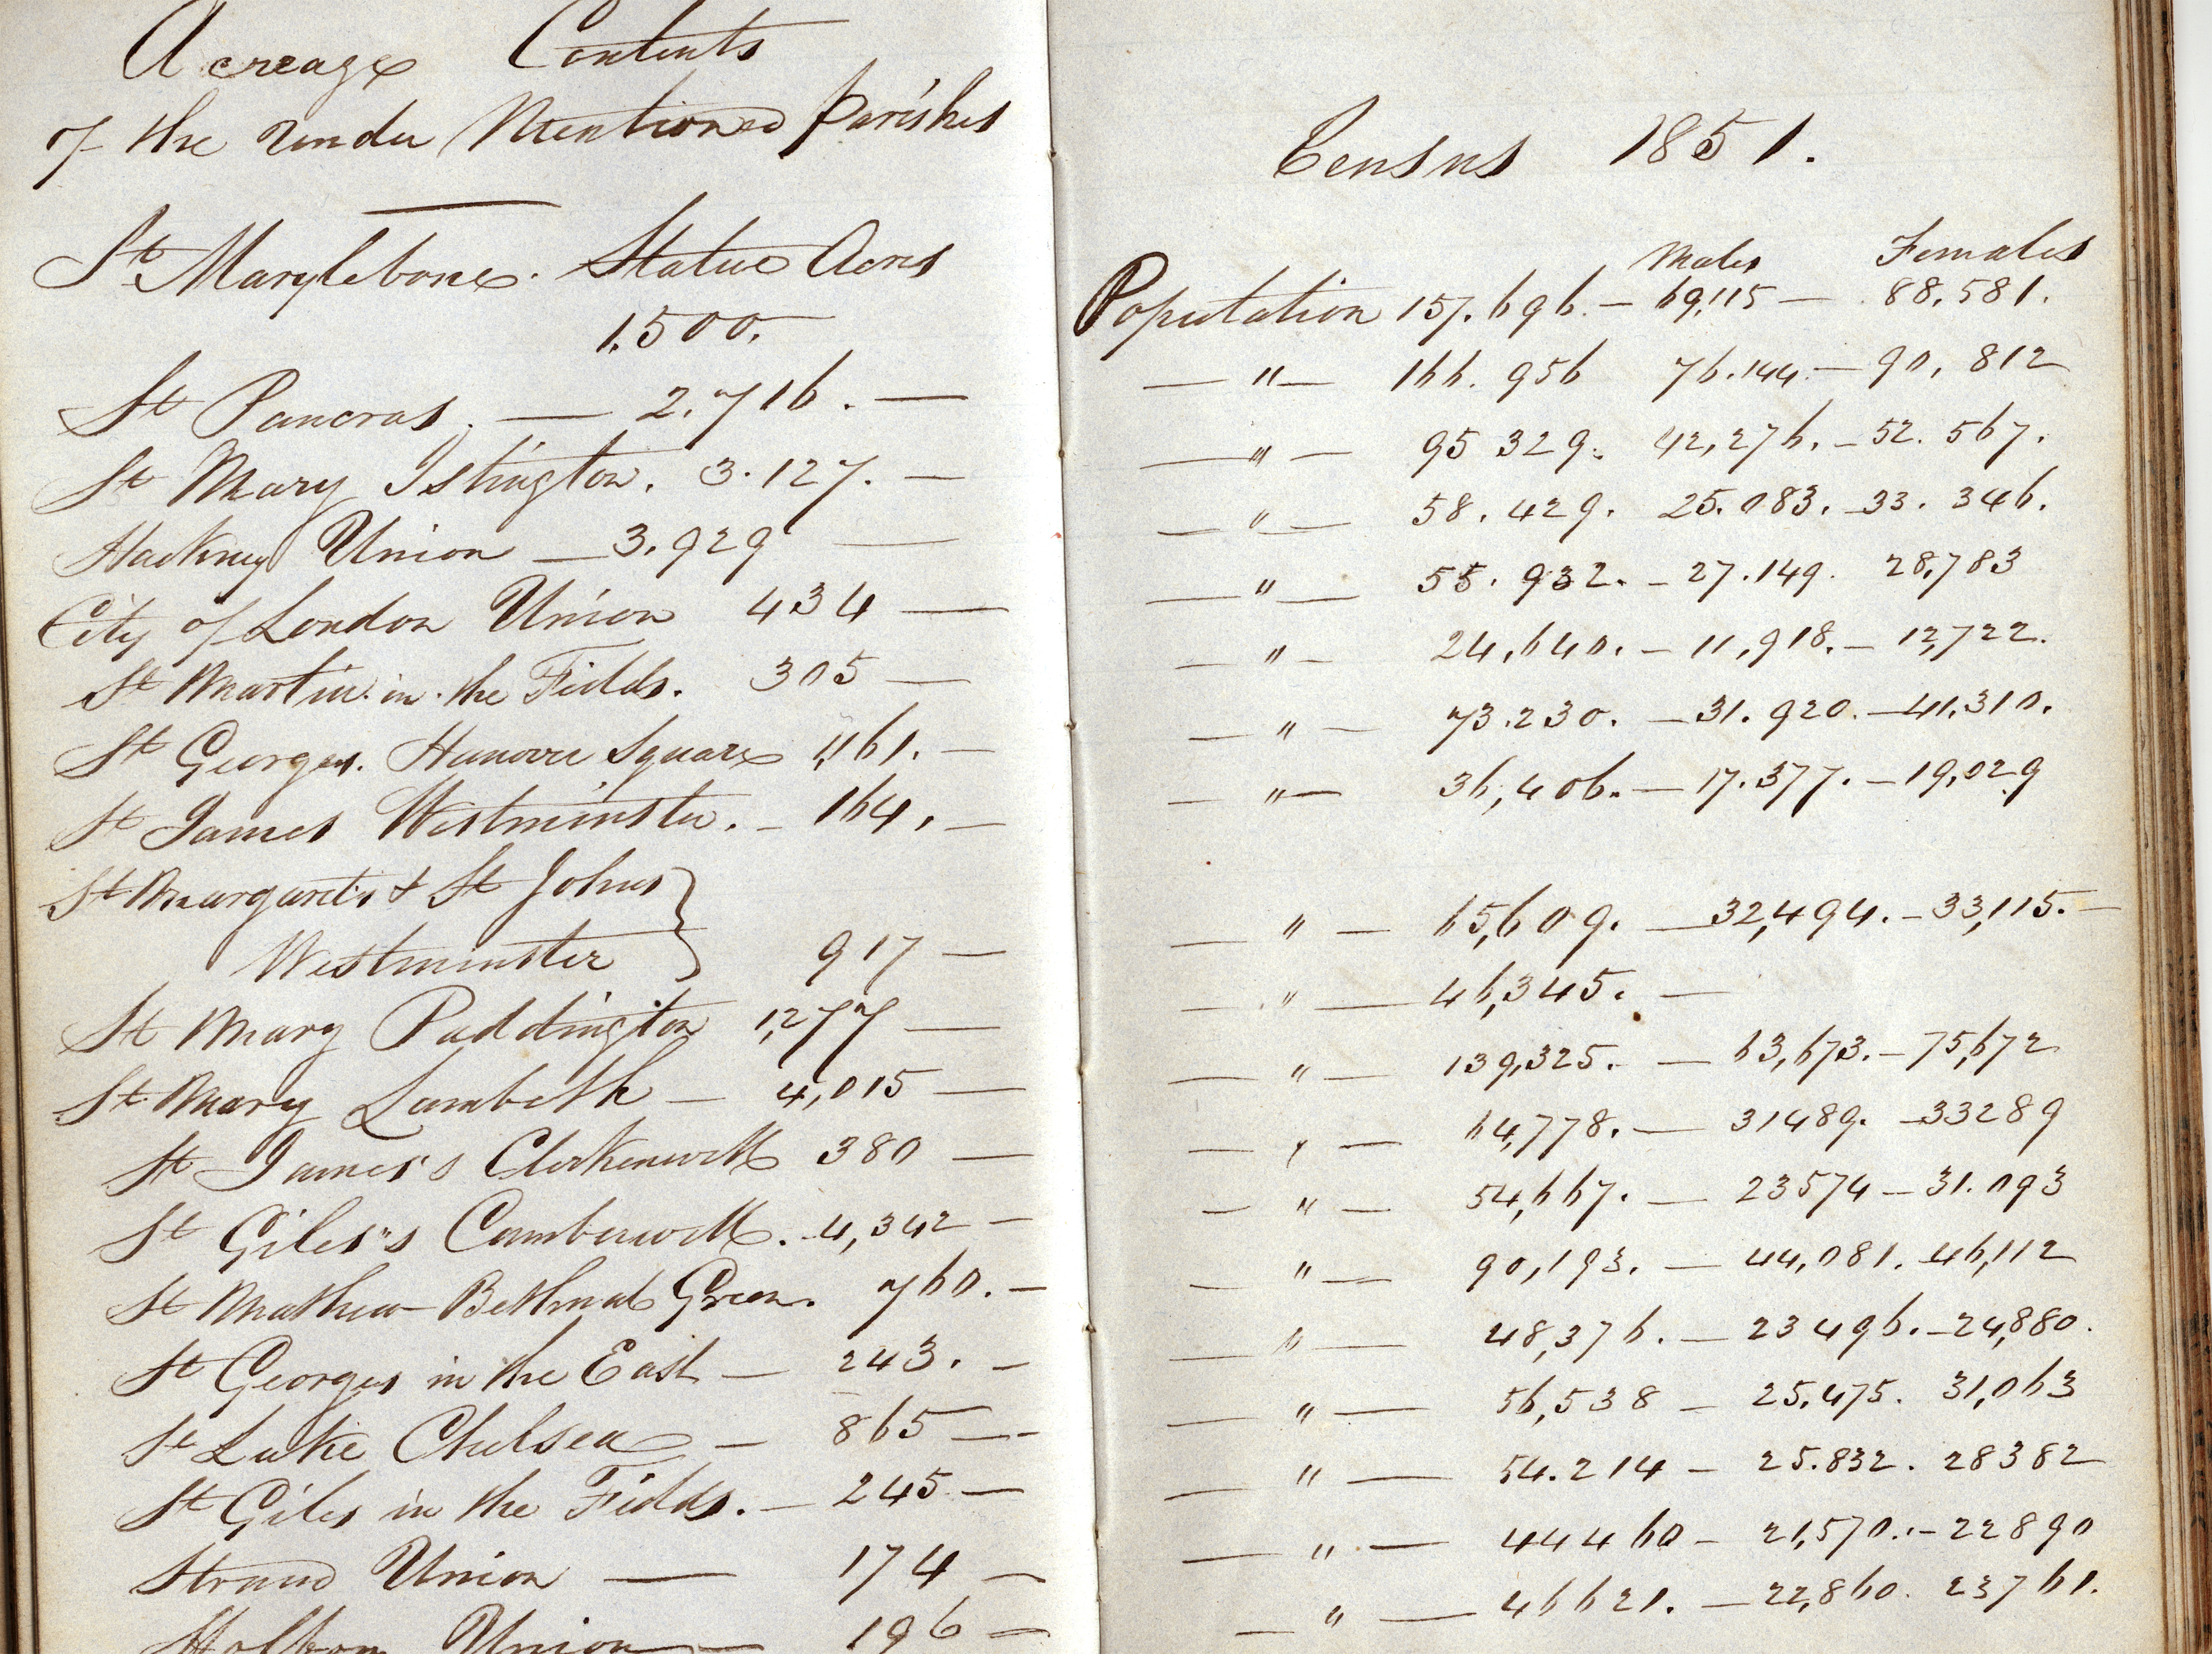 Acreage Contents
of the under Mentioned parishes
St Marylebone. Statue Acres
1,500.
St Pancras. — 2.716. —
St Mary Islington. 3.127. —
Hackney Union — 3.929 —
City of London Union 434 —
St Martin in the Fields. 305 —
St Georges. Hanover Square 1,161. —
St James Westminster. — 164. —
St Margarets & St Johns }
Westminster } 917 —
St Mary Paddington 1,277 —
St Mary Lambeth — 4,015 —
St James's Clerkenwell 380 —
St Giles's Camberwell. - 4,342 —
St Mathew Bethnal Green. 760. —
St Georges in the East — 243. —
St Luke Chelsea — 865 —
St Giles in the Fields. — 245 —
Strand Union — 174 —
Holborn Union — 196 —
Census 1851.
Males Females
Population 157.696. — 69,115 — 88,581.
— " — 166.956 76.144. — 90,812
— " — 95 329. 42,276. — 52.567.
— " — 58.429. 25.083. — 33.346.
— " — 55.932. — 27.149. 28,783
— " — 24,640. — 11,918. — 12,722.
— " — 73.230. — 31.920. — 41,310.
— " — 36,406. — 17.377. — 19,029
— " — 65,609. — 32,494. — 33,115. —
— " — 46,345. —
— " — 139,325. — 63,673. — 75,672
— " — 64,778. — 31489. — 33289
— " — 54,667. — 23574 — 31.093
— " — 90,193. — 44,081. 46,112
— " — 48,376. — 23496. — 24,880.
— " — 56,538 — 25.475. 31,063
— " — 54.214 — 25.832. 28382
— " — 44460 — 21,570. — 22890
— " — 46621. — 22,860. 23761.